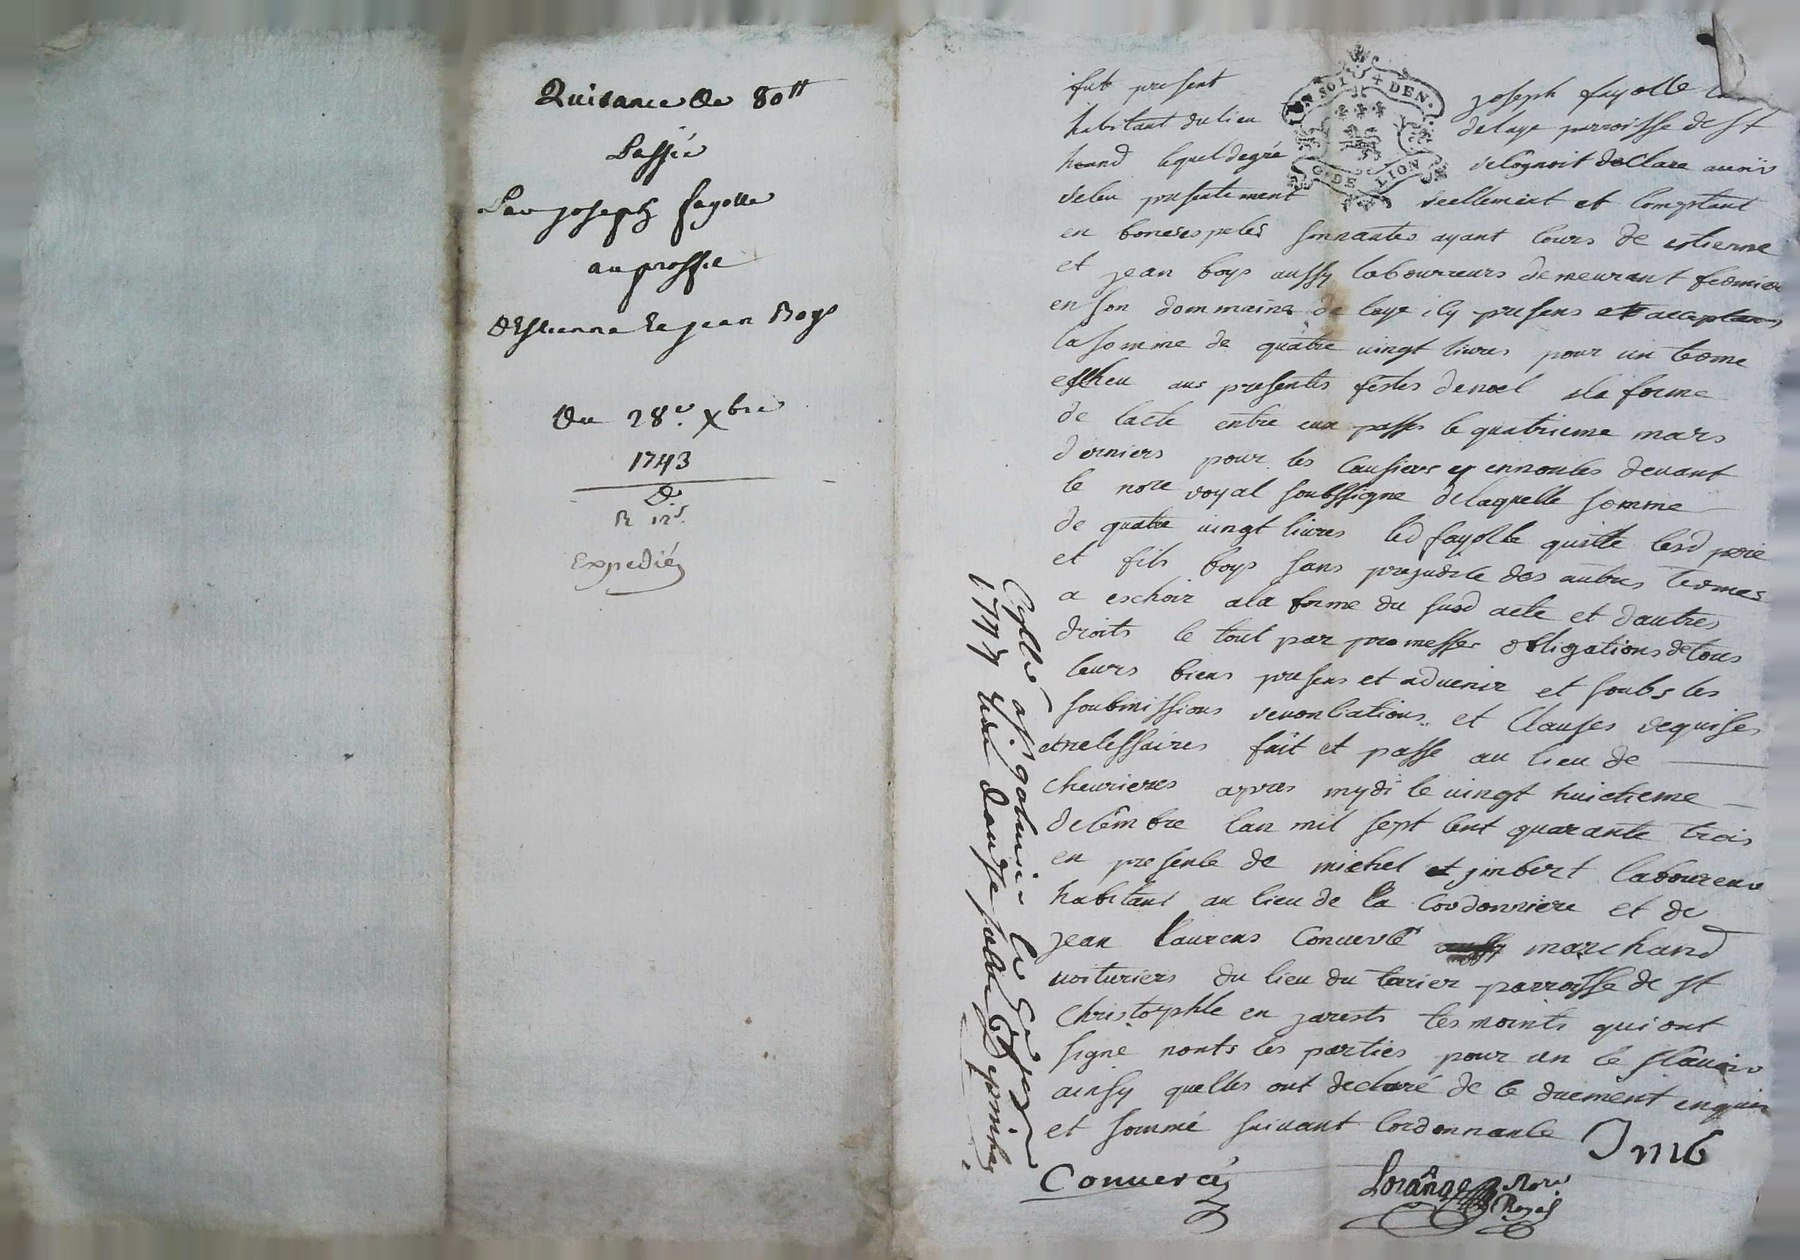 Quitance de 80tt
Passée
Par joseph fayolle
au proffit
d'Estienne et jean Boys
Du 28e. Xbre
1743
R 12s.
Expedié
fut present joseph fayolle
habitant du lieu de laye parroisse de st
heand lequel degré declare avoir
receu presentement reellement et comptant
en bones espeles sonnantes ayant cours de estienne
et jean boys aussy laboureurs demeurant fermier
en son dommaine de laye icy presens et acceptans
la somme de quatre vingt livres pour un terme
escheu aus presentes festes de noel a la forme
de lacte entre eux passe le quatrieme mars
derniers pour les causes y ennoncés devant
le nore royal soubssigne de laquelle somme
de quatre vingt livres led fayolle quitte lesd pere
et fils boys sans prejudice des autres termes
a eschoir a la forme du susd acte et dautres
droits le tout par promesses obligations de tous
leurs biens presens et advenir et soubs les
soubmissions renonciations et clauses requises
et necessaires fait et passe au lieu de
chevrieres apres mydi le vingt huictieme
decembre lan mil sept cent quarante trois
en presence de michel jinbert laboureur
habitant au lieu de la cordonniere et de
jean laurens Convercé marchand
voituriers du lieu du terier parroisse de st
christophle en jarests tesmoints qui ont
signé nonts les parties pour ne le scavoir
ainsy quelles ont declaré de ce duement enquis
et sommé suivant lordonnance
JMB
Convercy
Lorânge Nore
Royal
Côllé a st galmier le
1744 Recu douze sols
G • DE LION